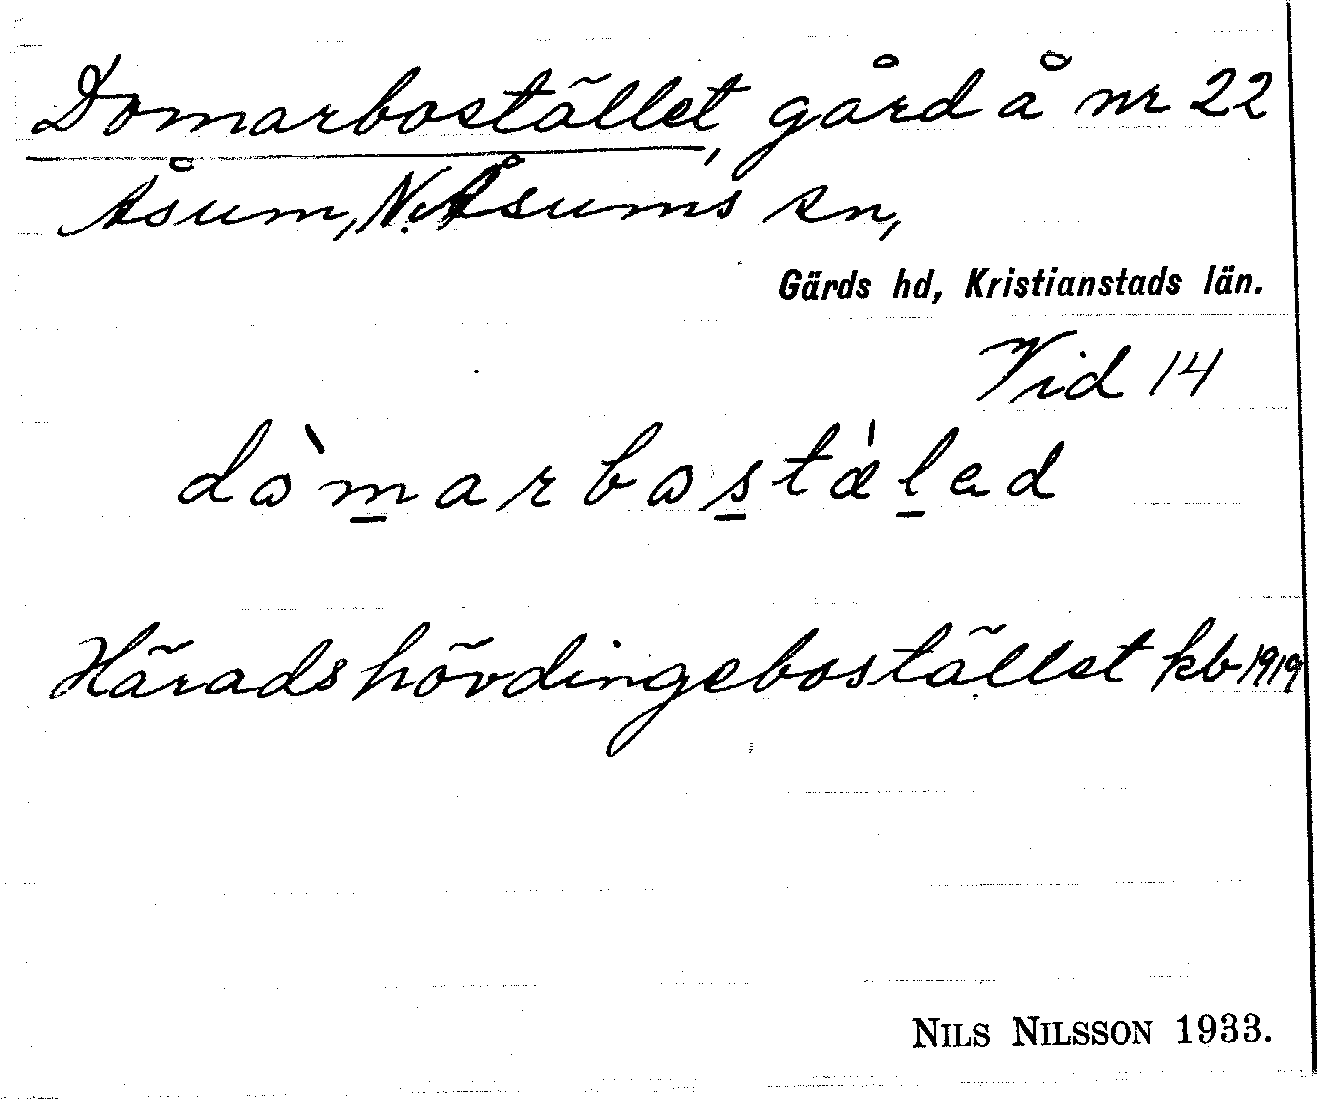 Domarbostället, gård å nr 22
Åsum, N. Åsums sn,
Gärds hd, Kristianstads län.
Vid 14
dòmarbostæ̀led
Häradshövdingebostället kb 1919
NILS NILSSON 1933.